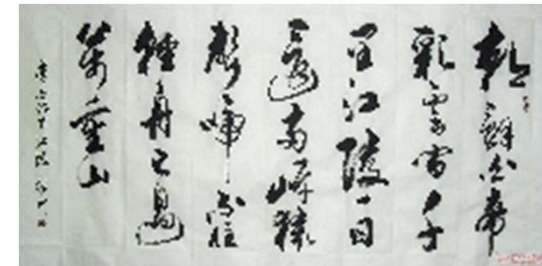 朝辭白帝
彩雲間千
里江陵一日
還兩岸猿
聲啼不住
輕舟已過
萬重山